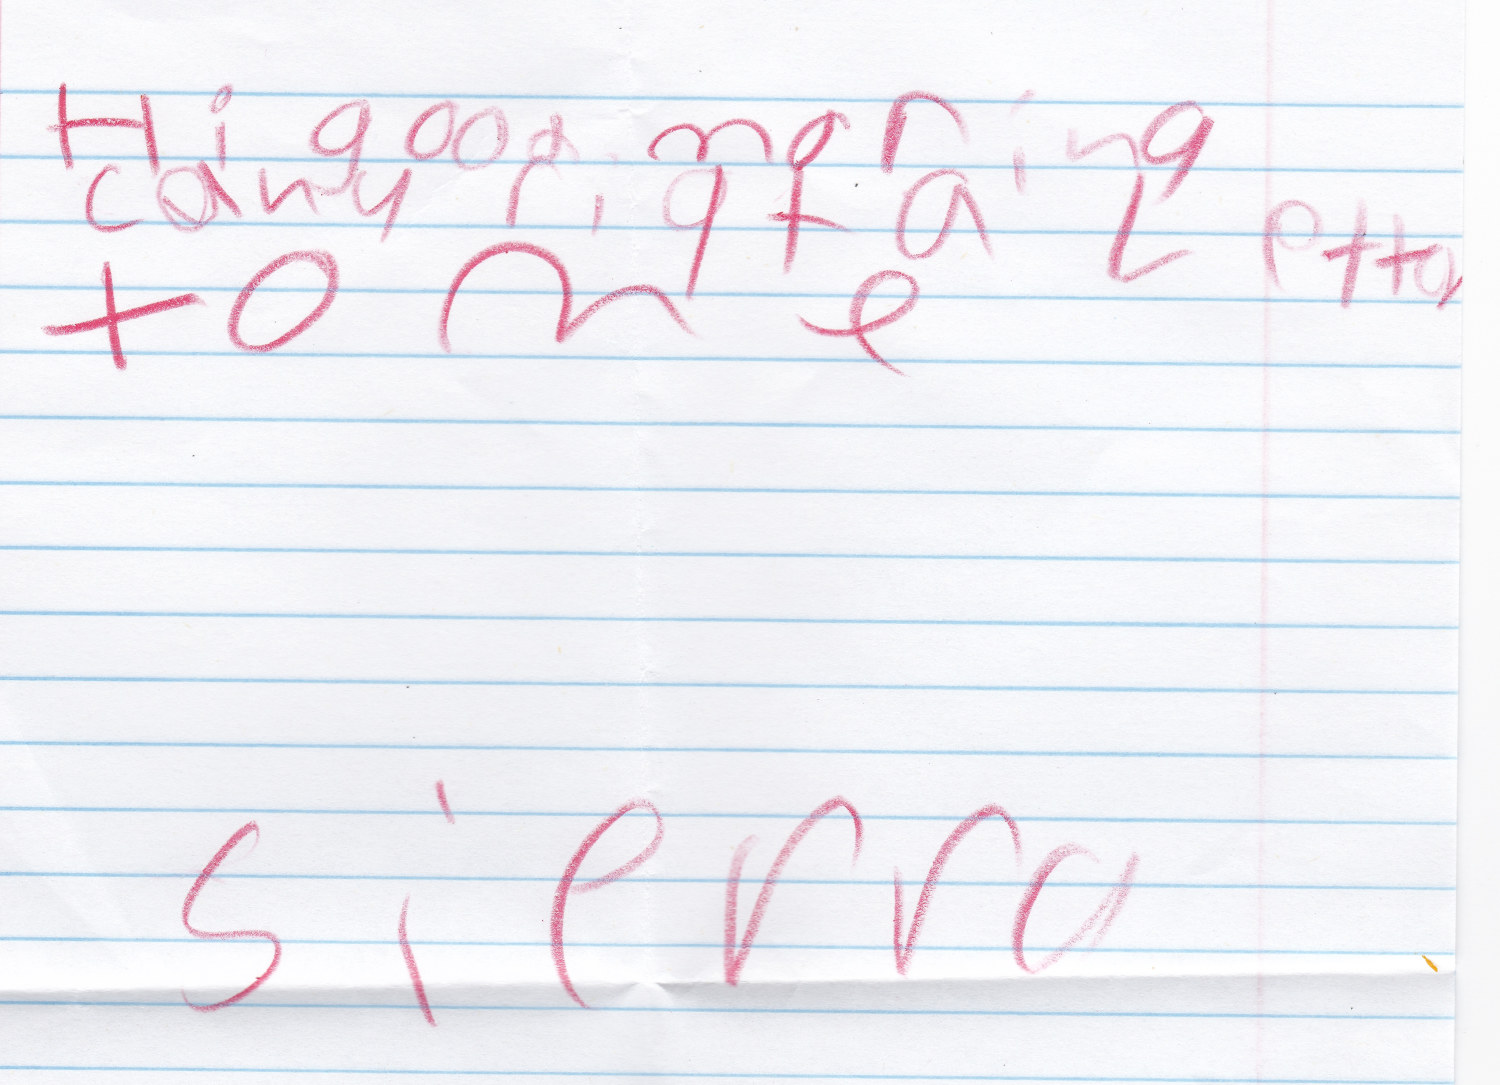 Hi good moring
cany riqt a Letta
to me
sierra